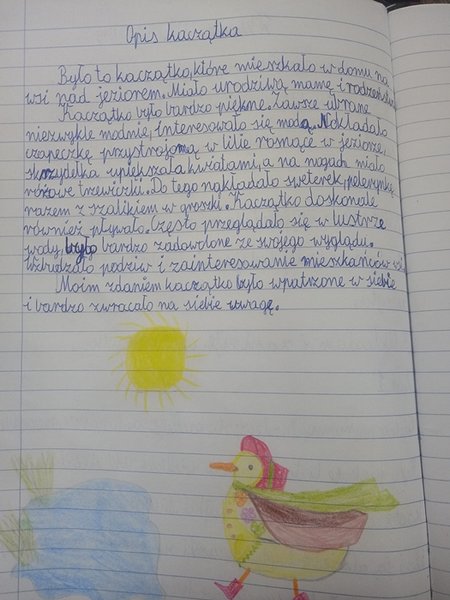 Opis kaczątka
Było to kaczątko, które mieszkało w domu na
wsi nad jeziorem. Miało urodziwą mamę i rodzeństwo.
Kaczątko było bardzo piękne. Zawsze ubrane
niezwykle modnie, interesowało się modą. Nakładało
czapeczkę przystrojoną w lilie rosnące w jeziorze,
skrzydełka upiększała kwiatami, a na nogach miało
różowe trzewiczki. Do tego nakładało sweterek, pelerynkę
razem z szalikiem w groszki. Kaczątko doskonale
również pływało. Często przeglądało się w lustrze
wody, było bardzo zadowolone ze swojego wyglądu.
Wzbudzało podziw i zainteresowanie mieszkańców
Moim zdaniem kaczątko było wpatrzone w siebie
i bardzo zwracało na siebie uwagę.